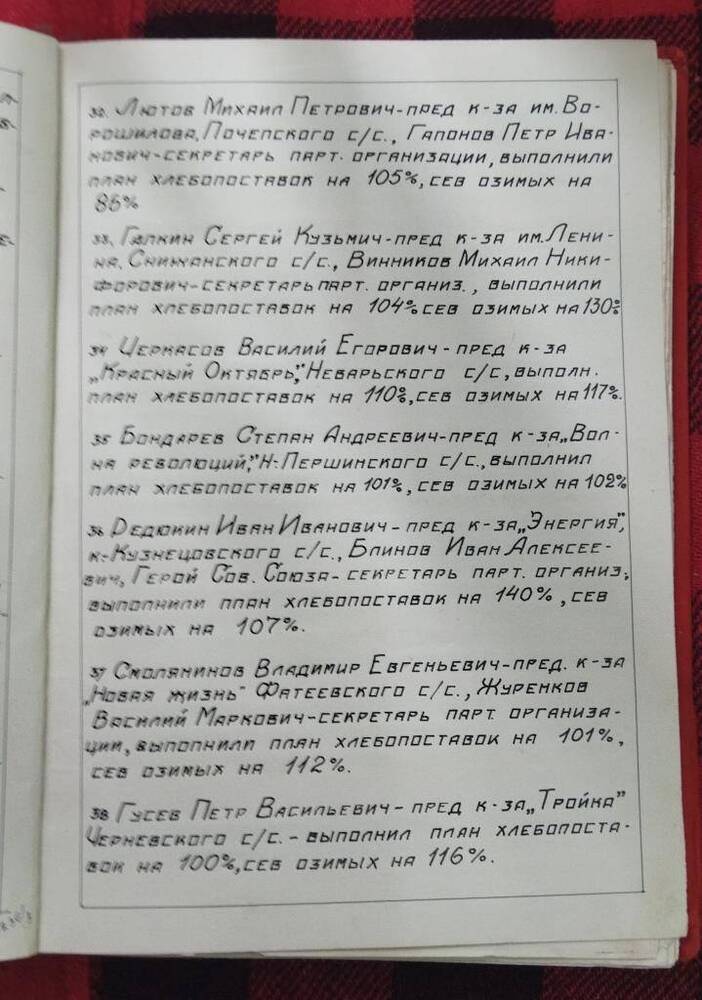 32. Лютов Михаил Петрович-пред к-за им. Во-
рошилова, Почепского с/с., Гапонов Петр Ива-
нович-секретарь парт. организации, выполнили
план хлебопоставок на 105%, сев озимых на
86%
33. Галкин Сергей Кузьмич-пред к-за им. Лени-
на, Снижанского с/с., Винников Михаил Ники-
форович-секретарь парт. организ., выполнили
план хлебопоставок на 104% сев озимых на 130%
34 Черкасов Василий Егорович - пред к-за
„Красный Октябрь", Неварьского с/с, выполн.
план хлебопоставок на 110%, сев озимых на 117%.
35 Бондарев Степан Андреевич-пред к-за „Вол-
на революций", Н-Першинского с/с., выполнил
план хлебопоставок на 101%, сев озимых на 102%
36 Дедюкин Иван Иванович - пред к-за „Энергия",
к-Кузнецовского с/с., Блинов Иван Алексее-
вич, Герой Сов. Союза - секретарь парт. организ.,
выполнили план хлебопоставок на 140%, сев
озимых на 107%.
37 Смолянинов Владимир Евгеньевич-пред. к-за
„Новая жизнь" Фатеевского с/с., Журенков
Василий Маркович-секретарь парт. организа-
ции, выполнили план хлебопоставок на 101%,
сев озимых на 112%.
38 Гусев Петр Васильевич - пред к-за „Тройка"
Черневского с/с. - выполнил план хлебопоста-
вок на 100%, сев озимых на 116%.